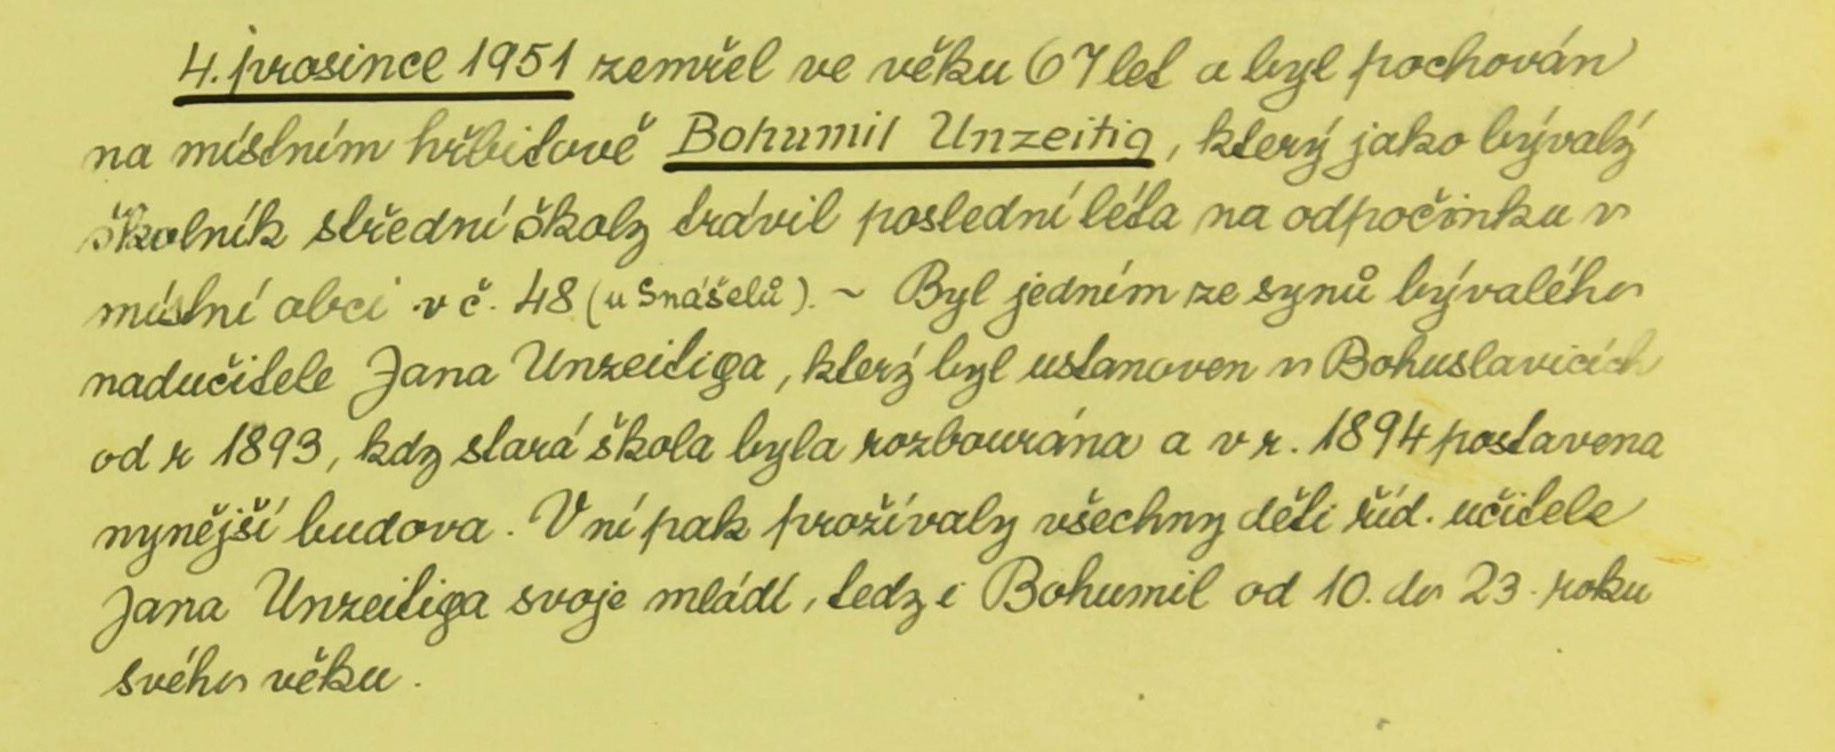 4. prosince 1951 zemřel ve věku 67 let a byl pochován
na místním hřbitově Bohumil Unzeitig, který jako bývalý
školník střední školy trávil poslední léta na odpočinku v
místní obci v č. 48 (u Snášelů). ~ Byl jedním ze synů bývalého
nadučitele Jana Unzeitiga, který byl ustanoven v Bohuslavicích
od r 1893, kdy stará škola byla rozbourána a v r. 1894 postavena
nynější budova. V ní pak prožívaly všechny děti říd. učitele
Jana Unzeitiga svoje mládí, tedy i Bohumil od 10. do 23. roku
svého věku.